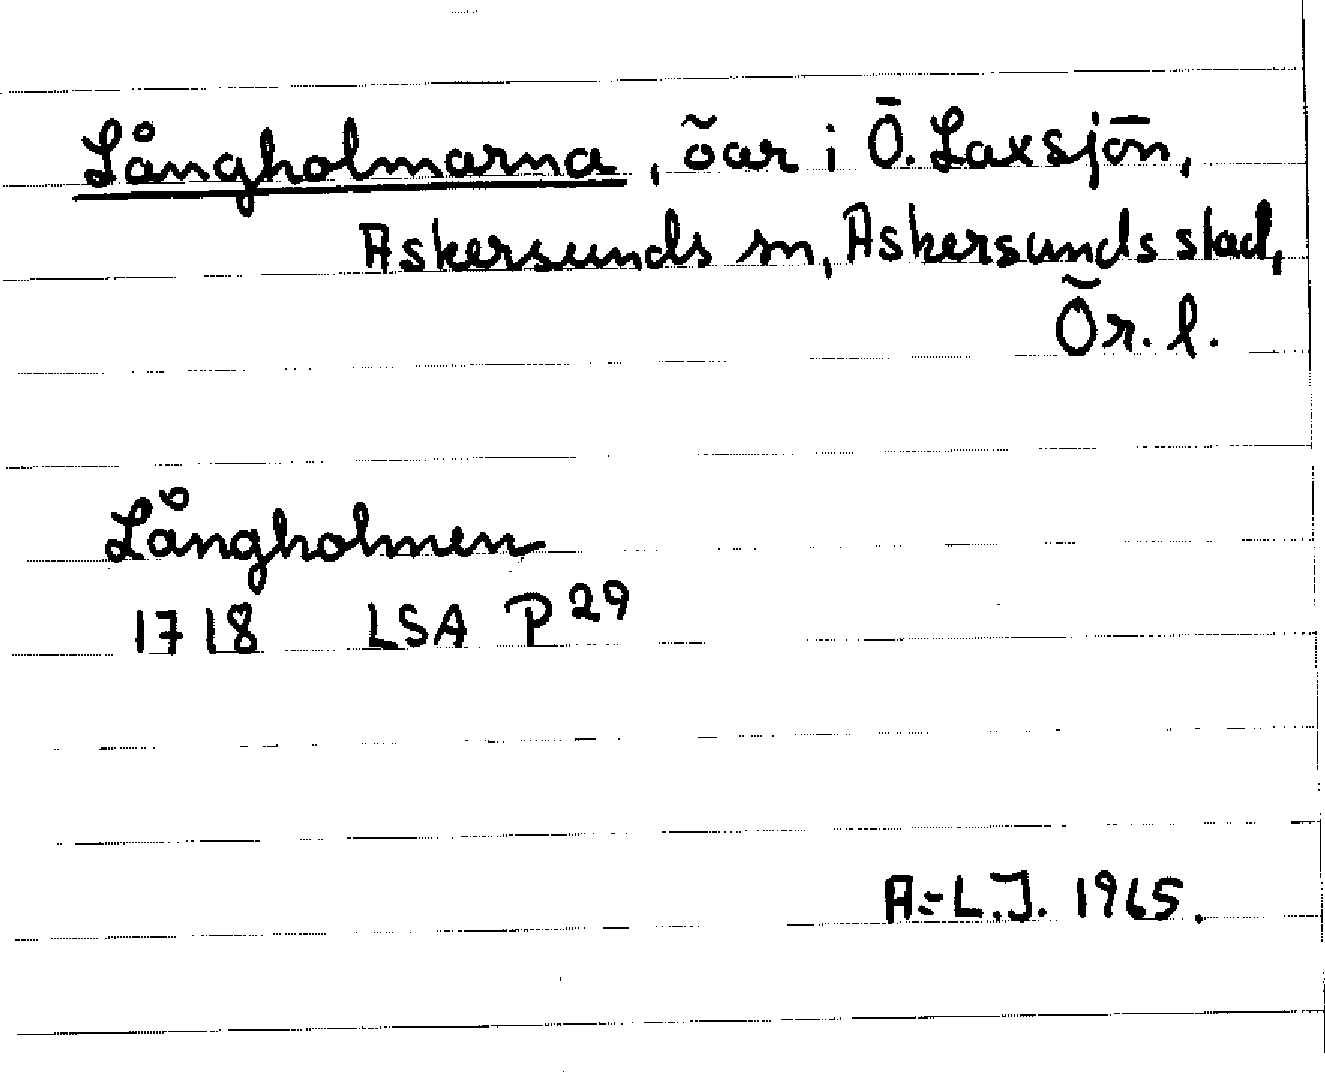 Långholmarna, öar i Ö. Laxsjön,
Askersunds sn, Askersunds stad,
Ör. l.
Långholmen
1718 LSA P 29
A-L.J. 1965.